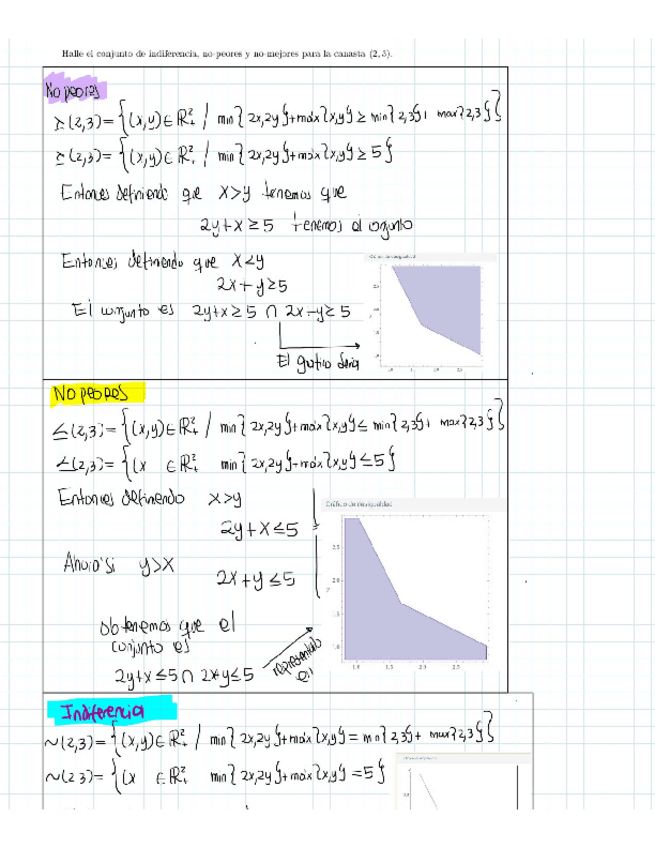 Halle el conjunto de indiferencia, no-peores y no-mejores para la canasta (2,3).
No peores
≿(2,3)= {(x,y)∈ℝ²₊ / min{2x,2y}+máx{x,y} ≥ min{2,3}+ max{2,3}}
≿(2,3)= {(x,y)∈ℝ²₊ / min{2x,2y}+máx{x,y} ≥ 5}
Entonces definiendo que x>y tenemos que
2y+x ≥ 5 tenemos el conjunto
Entonces definiendo que x<y
2x+y≥5
El conjunto es 2y+x ≥ 5 ∩ 2x+y ≥ 5
El grafico seria
No peores
≤(2,3)= {(x,y)∈ℝ²₊ / min{2x,2y}+máx{x,y} ≤ min{2,3}+ max{2,3}}
≤(2,3)= {(x ∈ℝ²₊ min{2x,2y}+máx{x,y} ≤5}
Entonces definendo x>y
2y+x≤5
Ahora si y>x
2x+y≤5
Gráfico de desigualdad
obtenemos que el
conjunto es
2y+x≤5 ∩ 2x+y≤5
representado
en
Indiferencia
~(2,3)= {(x,y)∈ℝ²₊ / min{2x,2y}+máx{x,y} = min{2,3}+ max{2,3}}
~(2 3)= {(x ∈ℝ²₊ min{2x,2y}+máx{x,y} =5}